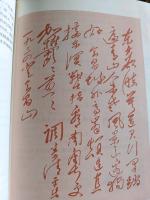 东方欲晓莫道君行早踏
遍青山人未老风景这边独
好会昌城外高峰颠连直
接东溟战士指看南粤更
加郁郁葱葱调寄清平乐